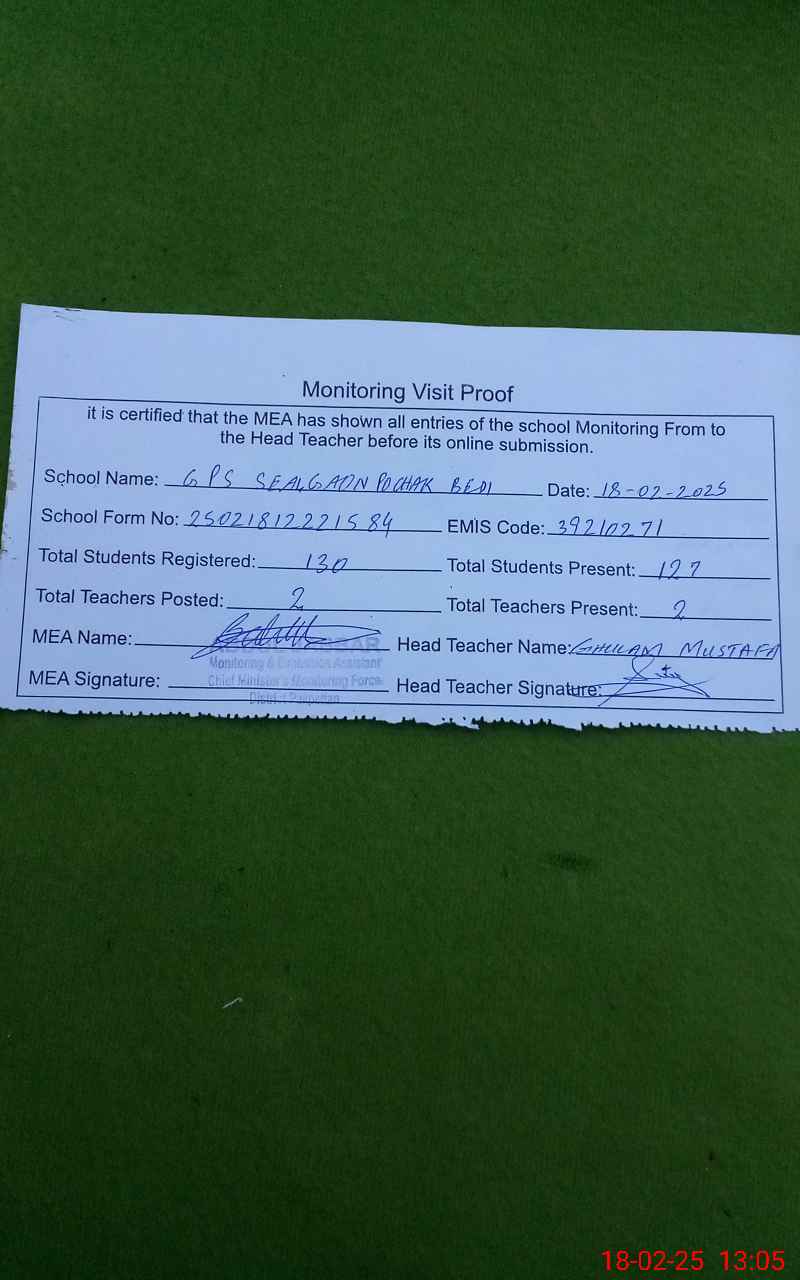 Monitoring Visit Proof
it is certified that the MEA has shown all entries of the school Monitoring From to
the Head Teacher before its online submission.
School Name: GPS SEALGAON POCHAK BEDI Date: 18-02-2025
School Form No: 25021812221584 EMIS Code: 39210271
Total Students Registered: 130 Total Students Present: 127
Total Teachers Posted: 2 Total Teachers Present: 2
MEA Name: Head Teacher Name: GHULAM MUSTAFA
Monitoring & Evaluation Assistant
MEA Signature: Chief Minister's Monitoring Force Head Teacher Signature:
District Pakpattan
18-02-25 13:05